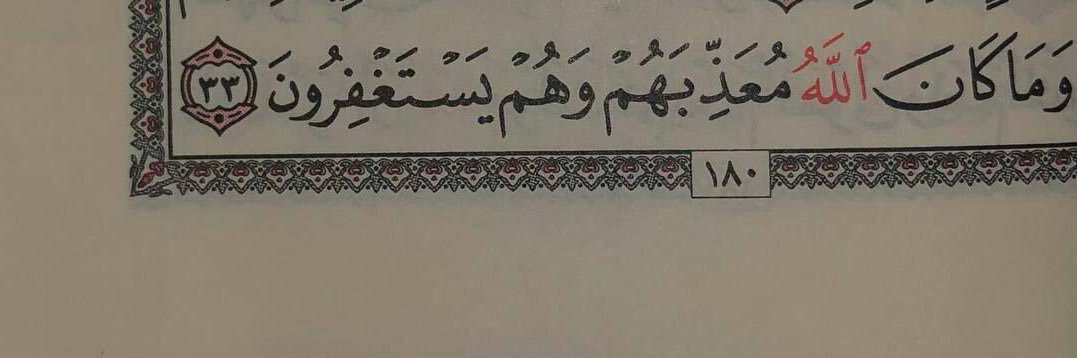 وَمَا كَانَ ٱللَّهُ مُعَذِّبَهُمْ وَهُمْ يَسْتَغْفِرُونَ ٣٣
١٨٠